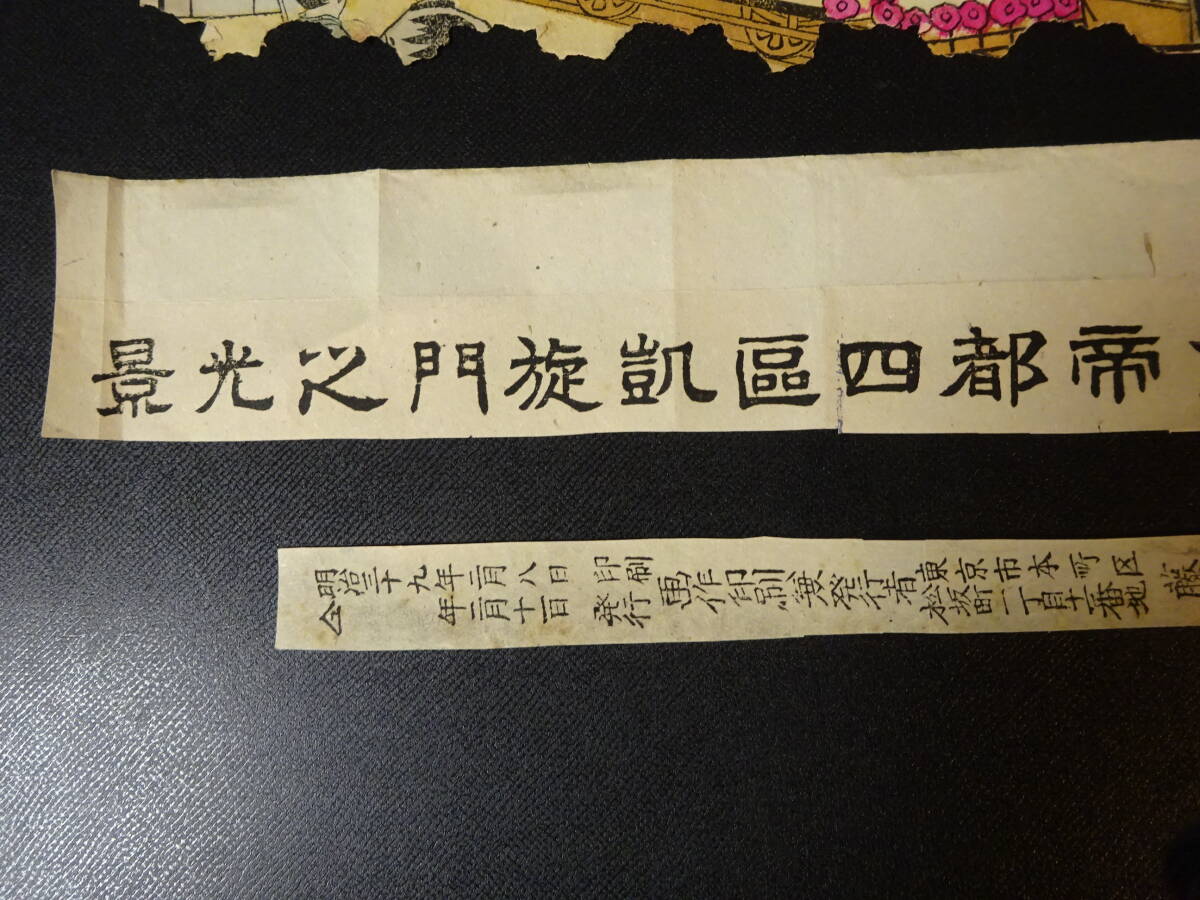 帝都四區凱旋門之光景
明治三十九年二月八日印刷
仝年二月十一日発行
画作印刷兼発行者
東京市本所区
松坂町一丁目十二番地